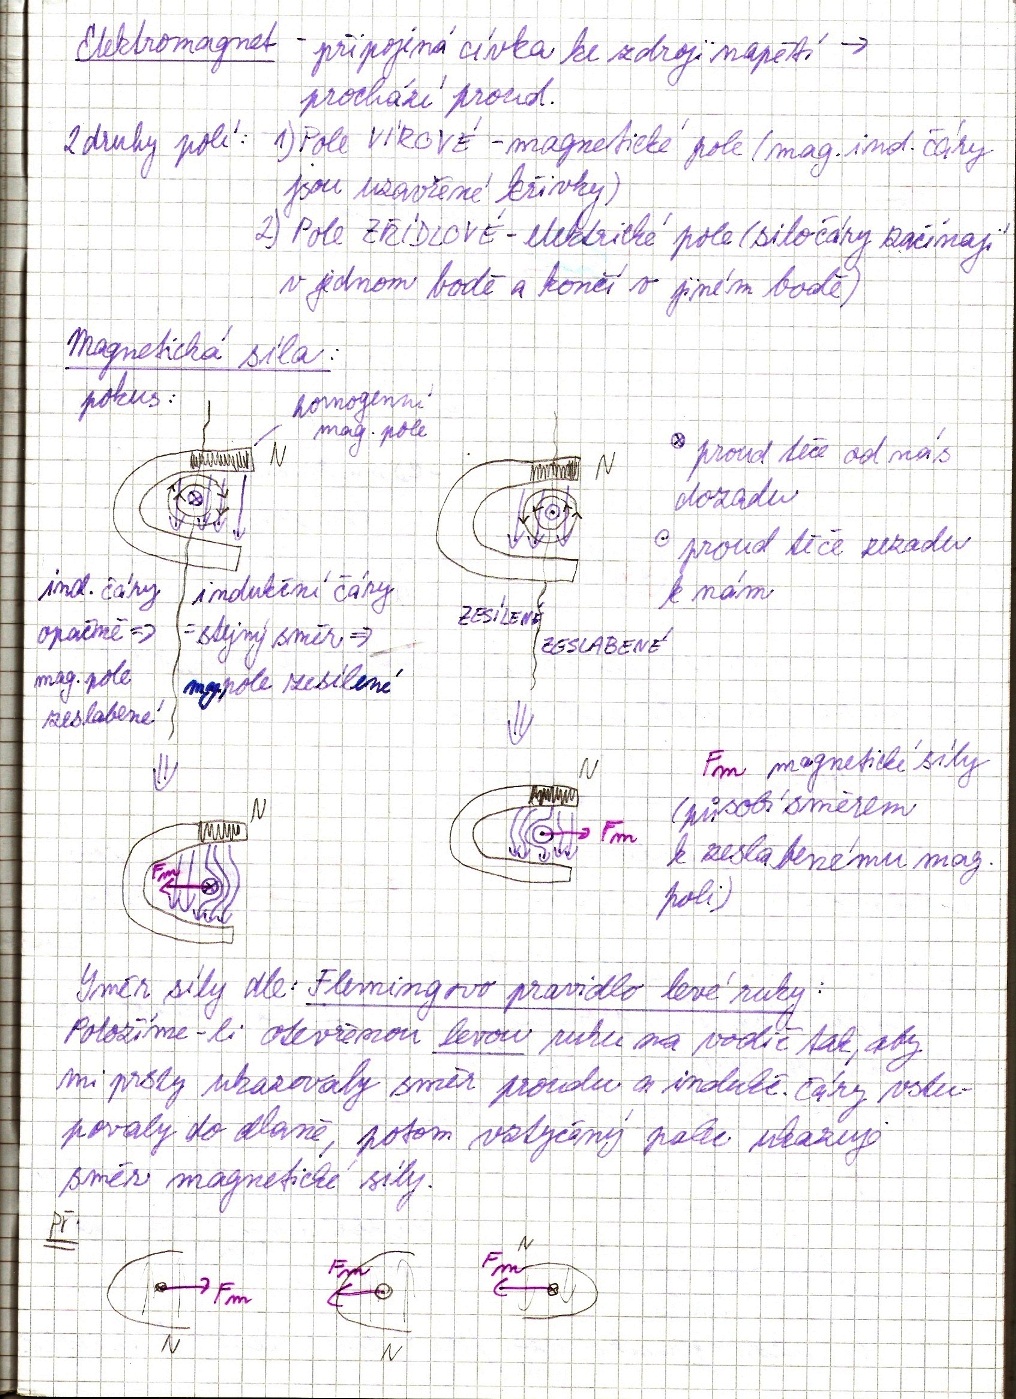 Elektromagnet - připojená cívka ke zdroji napětí →
prochází proud.
2 druhy polí: 1) Pole VÍROVÉ - magnetické pole (mag. ind. čáry
jsou uzavřené křivky)
2) Pole ZŘÍDLOVÉ - elektrické pole (siločáry začínají
v jednom bodě a končí v jiném bodě)
Magnetická síla:
pokus:
homogenní
mag. pole
N
N
⊗ proud teče od nás
dozadu
⊙ proud teče zezadu
k nám
ind. čáry
opačně ⇒
mag. pole
zeslabené
indukční čáry
= stejný směr ⇒
mg. pole zesílené
ZESÍLENÉ
ZESLABENÉ
N
Fm
N
Fm
Fm magnetické síly
(působí směrem
k zeslabenému mag.
poli)
Směr síly dle: Flemingovo pravidlo levé ruky:
Položíme-li otevřenou levou ruku na vodič tak, aby
mi prsty ukazovaly směr proudu a indukč. čáry vstu-
povaly do dlaně, potom vztyčený palec ukazuje
směr magnetické síly.
Př:
Fm
N
Fm
N
N
Fm